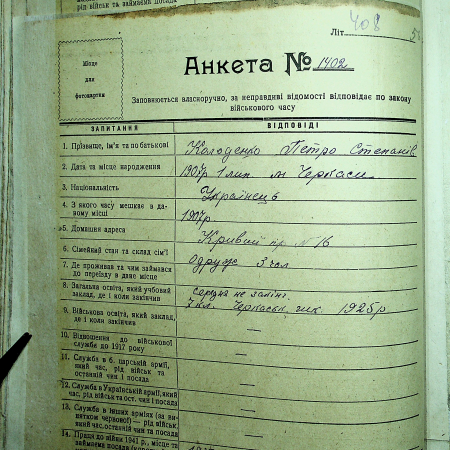 рід військ та займаємі посада
408
Літ.
Місце
для
фотокартки
Анкета № 1402
Заповнюється власноручно, за неправдиві відомості відповідає по закону
військового часу
ЗАПИТАННЯ ВІДПОВІДІ
1. Прізвище, ім'я та по батькові Колоденко Петро Степанів
2. Дата та місце народження 1907р 1 лип. м Черкаси
3. Національність Українець
4. З якого часу мешкає в да-
вому місці 1907р.
5. Домашня адреса Кривий пр № 16
6. Сімейний стан та склад сім'ї одруж 3 чол
7. Де проживав та чим займався
до переїзду в дане місце —
8. Загальна освіта, який учбовий
заклад, де і коли закінчив
середня не закінч.
7 кл. Черкаськ. 1925р
9. Військова освіта, який заклад,
де і коли закінчив —
10. Відношення до військової
служби до 1917 року —
11. Служба в б. царській армії,
чин, рід військ та
останній чин і посада —
12. Служба в Українській армії, який
час, рід військ та ост. чин і посада —
13. Служба в інших арміях (за ви-
нятком червоної) — рід військ,
який час, останній чин та посада —
14. Праця до війни 1941 р., місце та
займаєма посада